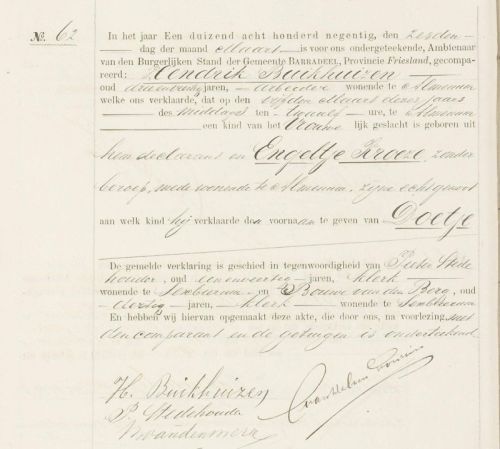 No. 62
In het jaar Een duizend acht honderd negentig, den zesden
dag der maand Maart is voor ons ondergeteekende, Ambtenaar
van den Burgerlijken Stand der Gemeente BARRADEEL, Provincie Friesland, gecompa-
reerd: Hendrik Buikhuizen
oud jaren, Arbeider wonende te Almenum
welke ons verklaarde, dat op den vijfden Maart dezes jaars
des middags ten twaalf ure, te Almenum
een kind van het Vrouwe lijk geslacht is geboren uit
hem declarant en Engeltje Kroeze, zonder
beroep, mede wonende te Almenum, zijne echtgenoot
aan welk kind hij verklaarde den voornaam te geven van Doetje
De gemelde verklaring is geschied in tegenwoordigheid van Pieter Stede
houder, oud jaren, klerk
wonende te Sexbierum en Bouwe van den Berg, oud
dertig jaren, klerk wonende te Sexbierum
En hebben wij hiervan opgemaakt deze akte, die door ons, na voorlezing, met
den comparant en de getuigen is onderteekend.
H. Buikhuizen
P. Stedehouder